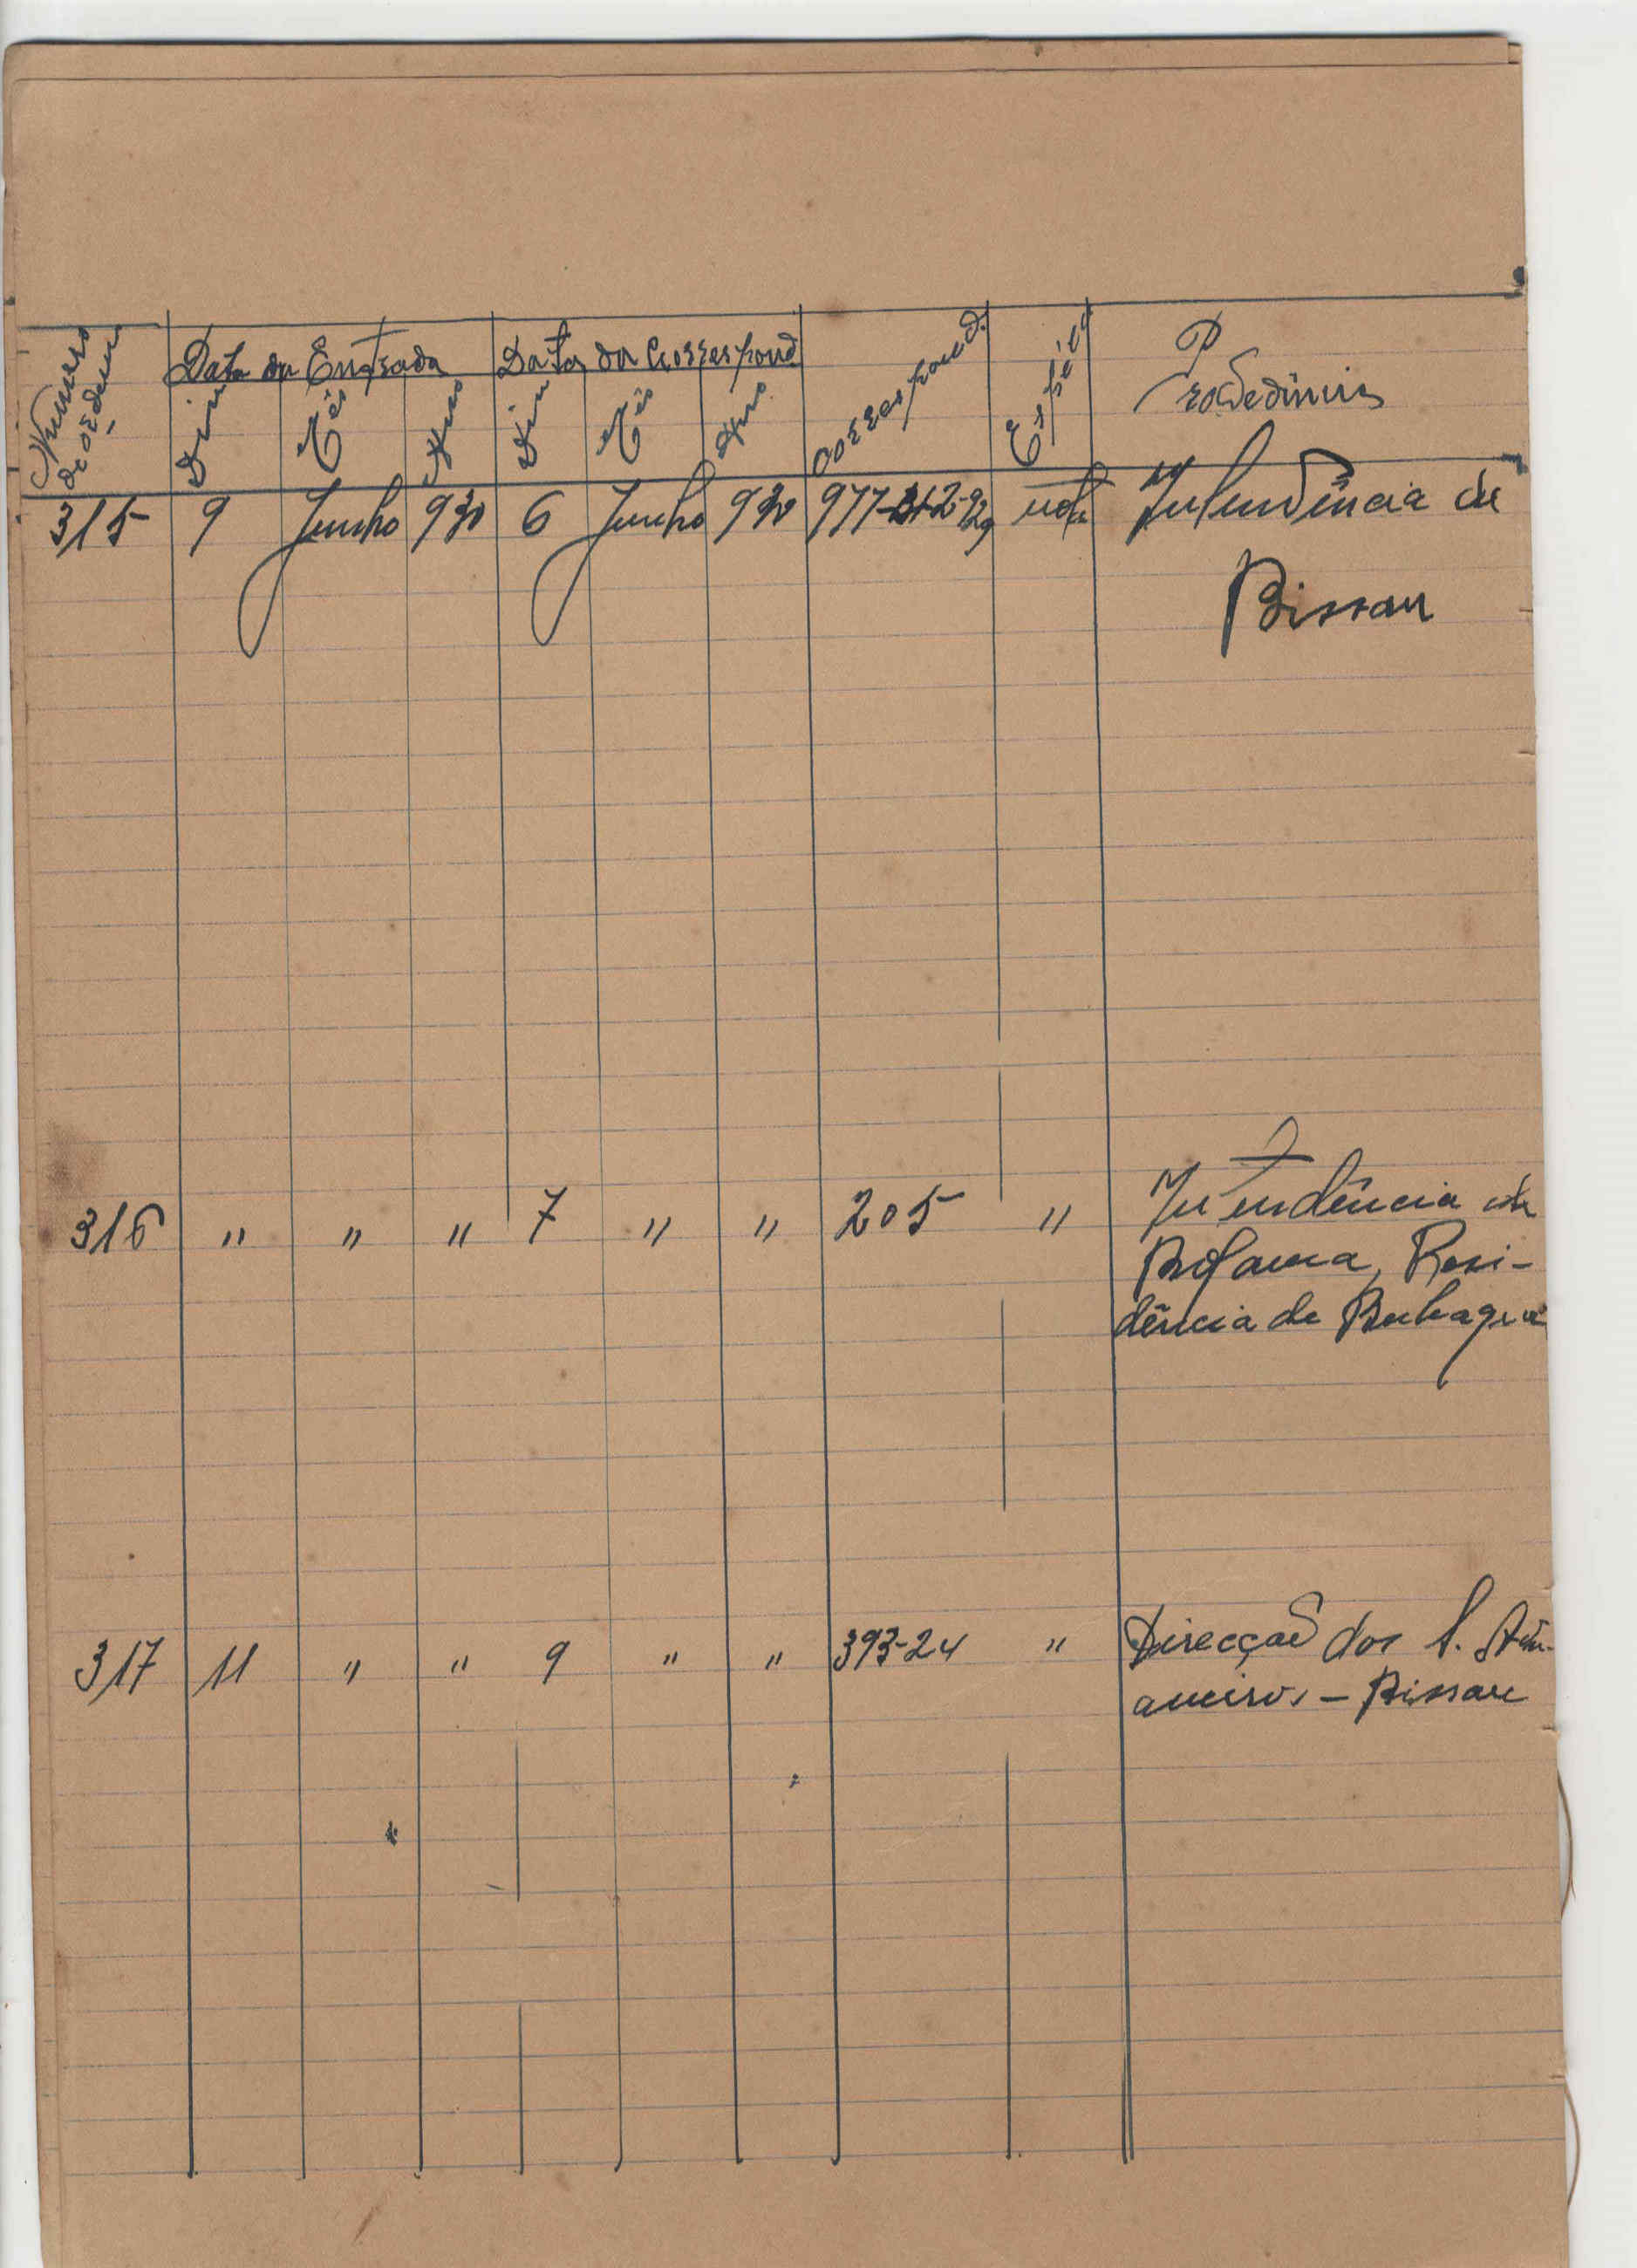 Numero de órdem
Data da Entrada Data da Correspond
Dia Mês Ano Dia Mês Ano Correspond. Espécie Procedência
315 9 Junho 930 6 Junho 930 nota Intendência de
Bissau
316 " " " 7 " " 205 " Intendência de
Bolama, Resi-
dência de Bubaque
317 11 " " 9 " " 393-24 " Direcção dos S.
aneiros - Bissau